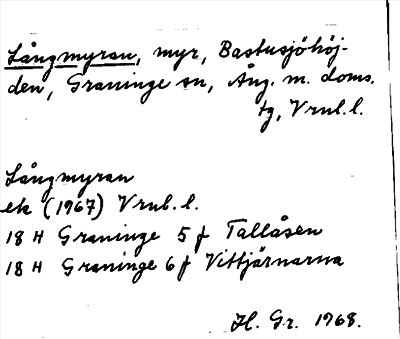 Långmyran, myr, Bastusjöhöj-
den, Graninge sn, Ång. m. doms.
tg, Vrnl. l.
Långmyran
ek (1967) Vrnl. l.
18 H Graninge 5 f Tallåsen
18 H Graninge 6 f Vittjärnarna
H. Gr. 1968.